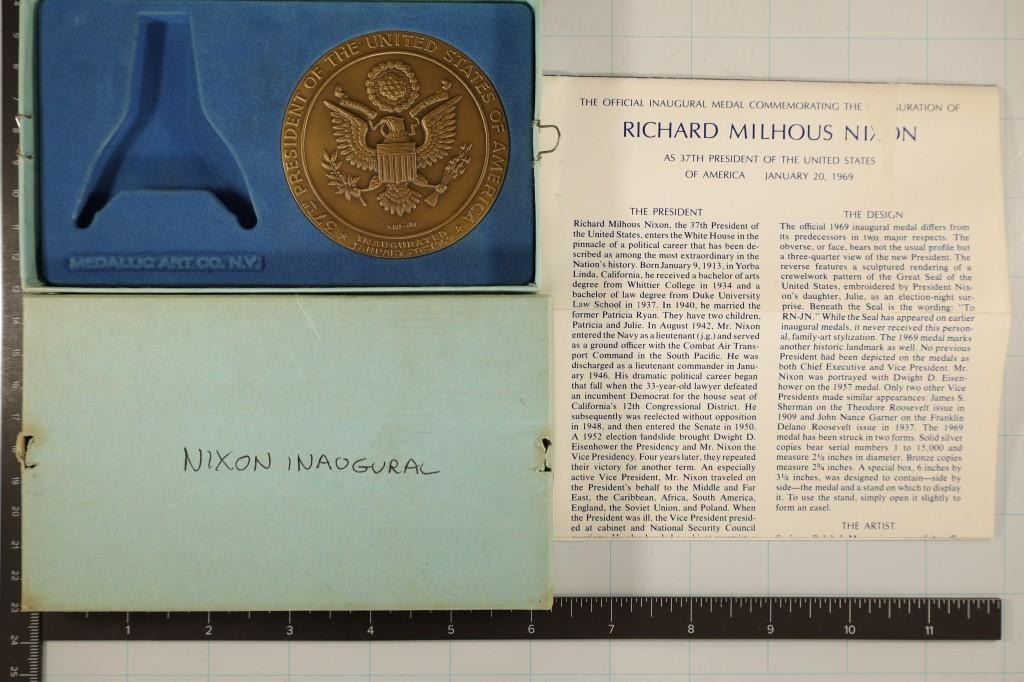 37TH PRESIDENT OF THE UNITED STATES OF AMERICA
INAUGURATED
JANUARY 20, 1969
MEDALLIC ART CO. N.Y.
NIXON INAUGURAL
THE OFFICIAL INAUGURAL MEDAL COMMEMORATING THE URATION OF
RICHARD MILHOUS NIXON
AS 37TH PRESIDENT OF THE UNITED STATES
OF AMERICA JANUARY 20, 1969
THE PRESIDENT
Richard Milhous Nixon, the 37th President of
the United States, enters the White House in the
pinnacle of a political career that has been de-
scribed as among the most extraordinary in the
Nation's history. Born January 9, 1913, in Yorba
Linda, California, he received a bachelor of arts
degree from Whittier College in 1934 and a
bachelor of law degree from Duke University
Law School in 1937. In 1940, he married the
former Patricia Ryan. They have two children,
Patricia and Julie. In August 1942, Mr. Nixon
entered the Navy as a lieutenant (j.g.) and served
as a ground officer with the Combat Air Trans-
port Command in the South Pacific. He was
discharged as a lieutenant commander in Janu-
ary 1946. His dramatic political career began
that fall when the 33-year-old lawyer defeated
an incumbent Democrat for the house seat of
California's 12th Congressional District. He
subsequently was reelected without opposition
in 1948, and then entered the Senate in 1950.
A 1952 election landslide brought Dwight D.
Eisenhower the Presidency and Mr. Nixon the
Vice Presidency. Four years later, they repeated
their victory for another term. An especially
active Vice President, Mr. Nixon traveled on
the President's behalf to the Middle and Far
East, the Caribbean, Africa, South America,
England, the Soviet Union, and Poland. When
the President was ill, the Vice President presid-
ed at cabinet and National Security Council
THE DESIGN
The official 1969 inaugural medal differs from
its predecessors in two major respects. The
obverse, or face, bears not the usual profile but
a three-quarter view of the new President. The
reverse features a sculptured rendering of a
crewelwork pattern of the Great Seal of the
United States, embroidered by President Nix-
on's daughter, Julie, as an election-night sur-
prise. Beneath the Seal is the wording: "To
RN-JN." While the Seal has appeared on earlier
inaugural medals, it never received this person-
al, family-art stylization. The 1969 medal marks
another historic landmark as well. No previous
President had been depicted on the medals as
both Chief Executive and Vice President. Mr.
Nixon was portrayed with Dwight D. Eisen-
hower on the 1957 medal. Only two other Vice
Presidents made similar appearances: James S.
Sherman on the Theodore Roosevelt issue in
1909 and John Nance Garner on the Franklin
Delano Roosevelt issue in 1937. The 1969
medal has been struck in two forms. Solid silver
copies bear serial numbers 1 to 15,000 and
measure 2½ inches in diameter. Bronze copies
measure 2¾ inches. A special box, 6 inches by
3½ inches, was designed to contain—side by
side—the medal and a stand on which to display
it. To use the stand, simply open it slightly to
form an easel.
THE ARTIST
1 2 3 4 5 6 7 8 9 10 11